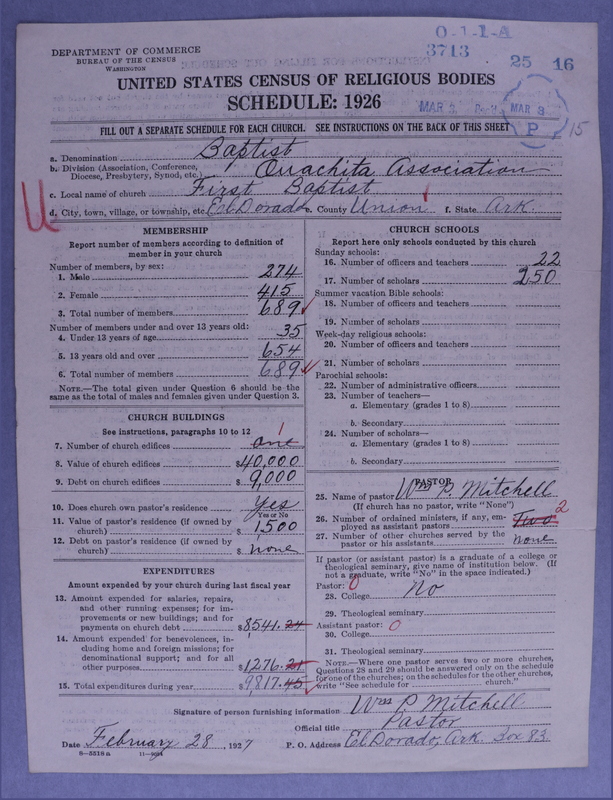 O-1-1-A
3713
25 16
DEPARTMENT OF COMMERCE
BUREAU OF THE CENSUS
WASHINGTON
UNITED STATES CENSUS OF RELIGIOUS BODIES
SCHEDULE: 1926
MAR
MAR 3
P
15
FILL OUT A SEPARATE SCHEDULE FOR EACH CHURCH. SEE INSTRUCTIONS ON THE BACK OF THIS SHEET
a. Denomination Baptist
b. Division (Association, Conference, Diocese, Presbytery, Synod, etc.) Ouachita Association
c. Local name of church First Baptist
d. City, town, village, or township, etc. El Dorado e. County Union f. State Ark.
MEMBERSHIP
Report number of members according to definition of
member in your church
Number of members, by sex:
1. Male 274
2. Female 415
3. Total number of members 689
Number of members under and over 13 years old:
4. Under 13 years of age 35
5. 13 years old and over 654
6. Total number of members 689
NOTE.—The total given under Question 6 should be the
same as the total of males and females given under Question 3.
CHURCH BUILDINGS
See instructions, paragraphs 10 to 12
1
7. Number of church edifices one
8. Value of church edifices $40,000
9. Debt on church edifices $9,000
10. Does church own pastor's residence? Yes
Yes or No
11. Value of pastor's residence (if owned by
church) $1500
12. Debt on pastor's residence (if owned by
church) $none
EXPENDITURES
Amount expended by your church during last fiscal year
13. Amount expended for salaries, repairs,
and other running expenses; for im-
provements or new buildings; and for
payments on church debt $8541.24
14. Amount expended for benevolences, in-
cluding home and foreign missions; for
denominational support; and for all
other purposes $1276.21
15. Total expenditures during year $9817.45
CHURCH SCHOOLS
Report here only schools conducted by this church
Sunday schools:
16. Number of officers and teachers 22
17. Number of scholars 250
Summer vacation Bible schools:
18. Number of officers and teachers
19. Number of scholars
Week-day religious schools:
20. Number of officers and teachers
21. Number of scholars
Parochial schools:
22. Number of administrative officers
23. Number of teachers—
a. Elementary (grades 1 to 8)
b. Secondary
24. Number of scholars—
a. Elementary (grades 1 to 8)
b. Secondary
PASTOR
25. Name of pastor Wm P. Mitchell
(If church has no pastor, write "None")
26. Number of ordained ministers, if any, em-
ployed as assistant pastors Two 2
27. Number of other churches served by the
pastor or his assistants none
If pastor (or assistant pastor) is a graduate of a college or
theological seminary, give name of institution below. (If
not a graduate, write "No" in the space indicated.)
Pastor: 0
28. College No
29. Theological seminary
Assistant pastor: 0
30. College
31. Theological seminary
NOTE.—Where one pastor serves two or more churches,
Questions 28 and 29 should be answered only on the schedule
for one of the churches; on the schedules for the other churches,
write "See schedule for church."
Signature of person furnishing information Wm P Mitchell
Official title Pastor
Date February 28 1927 P. O. Address El Dorado, Ark. Box 83
8-5518a 11-9084